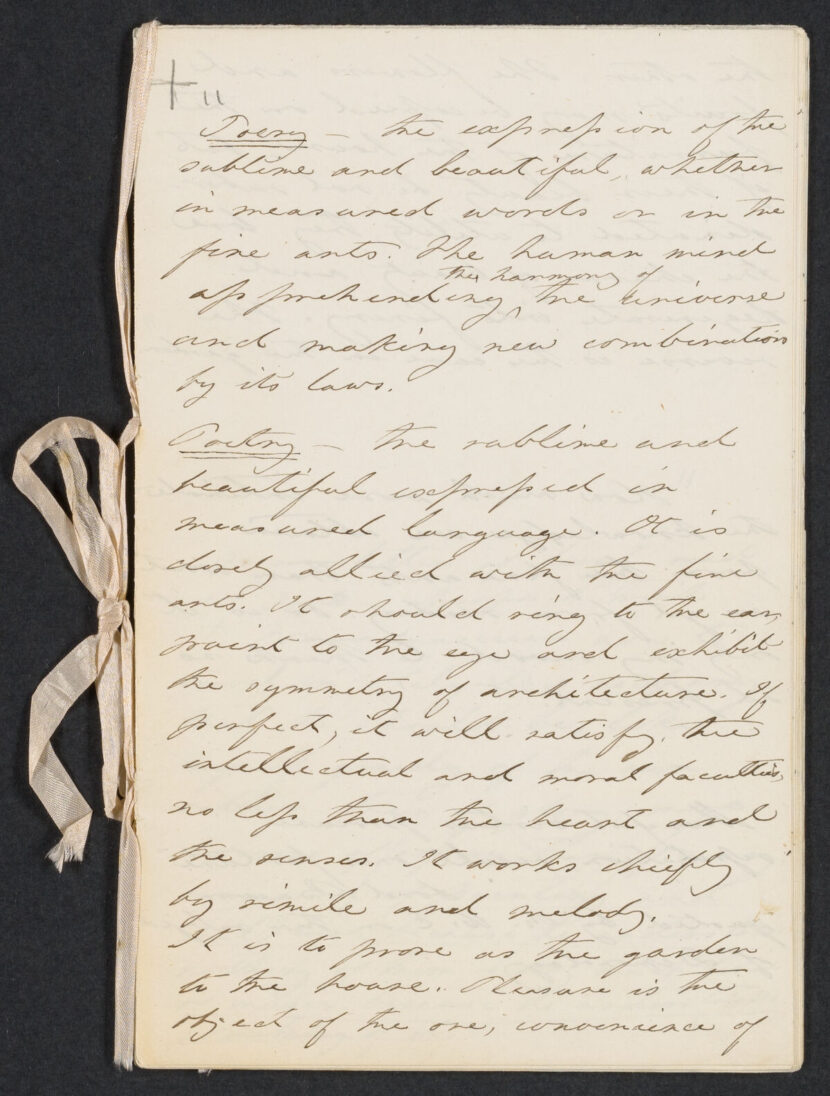 + "
Poesy — the expression of the
sublime and beautiful, whether
in measured words or in the
fine arts. The human mind
the harmony of
apprehending the universe
and making new combinations
by its laws.
Poetry — the sublime and
beautiful expressed in
measured language. It is
closely allied with the fine
arts. It should ring to the ear,
paint to the eye and exhibit
the symmetry of architecture. If
perfect, it will satisfy the
intellectual and moral faculties,
no less than the heart and
the senses. It works chiefly
by simile and melody.
It is to prose as the garden
to the house. Pleasure is the
object of the one, convenience of